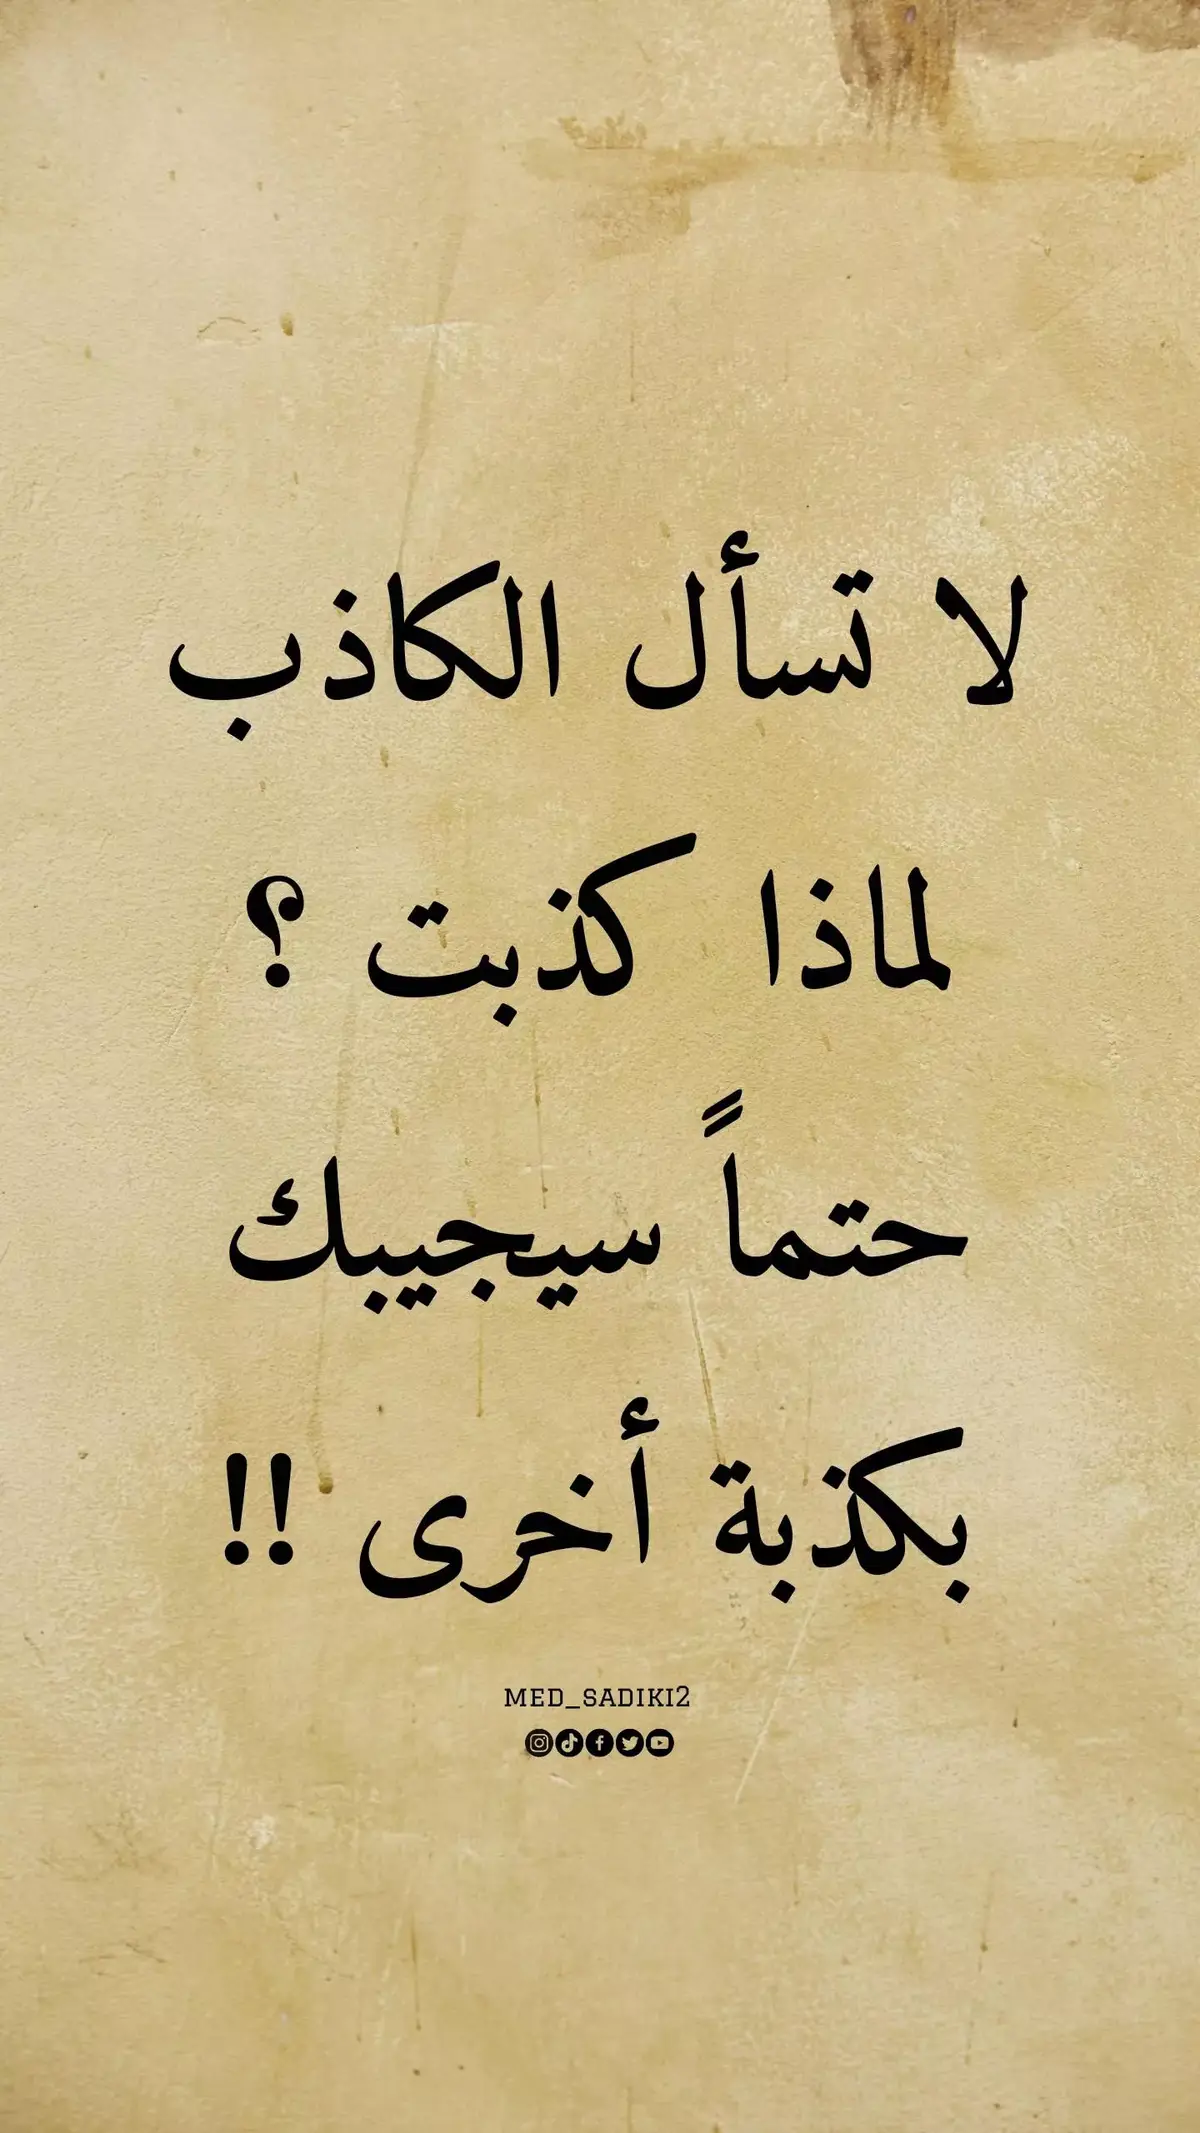 لا تسأل الكاذب
لماذا كذبت ؟
حتماً سيجيبك
بكذبة أخرى !!
MED_SADIKI2